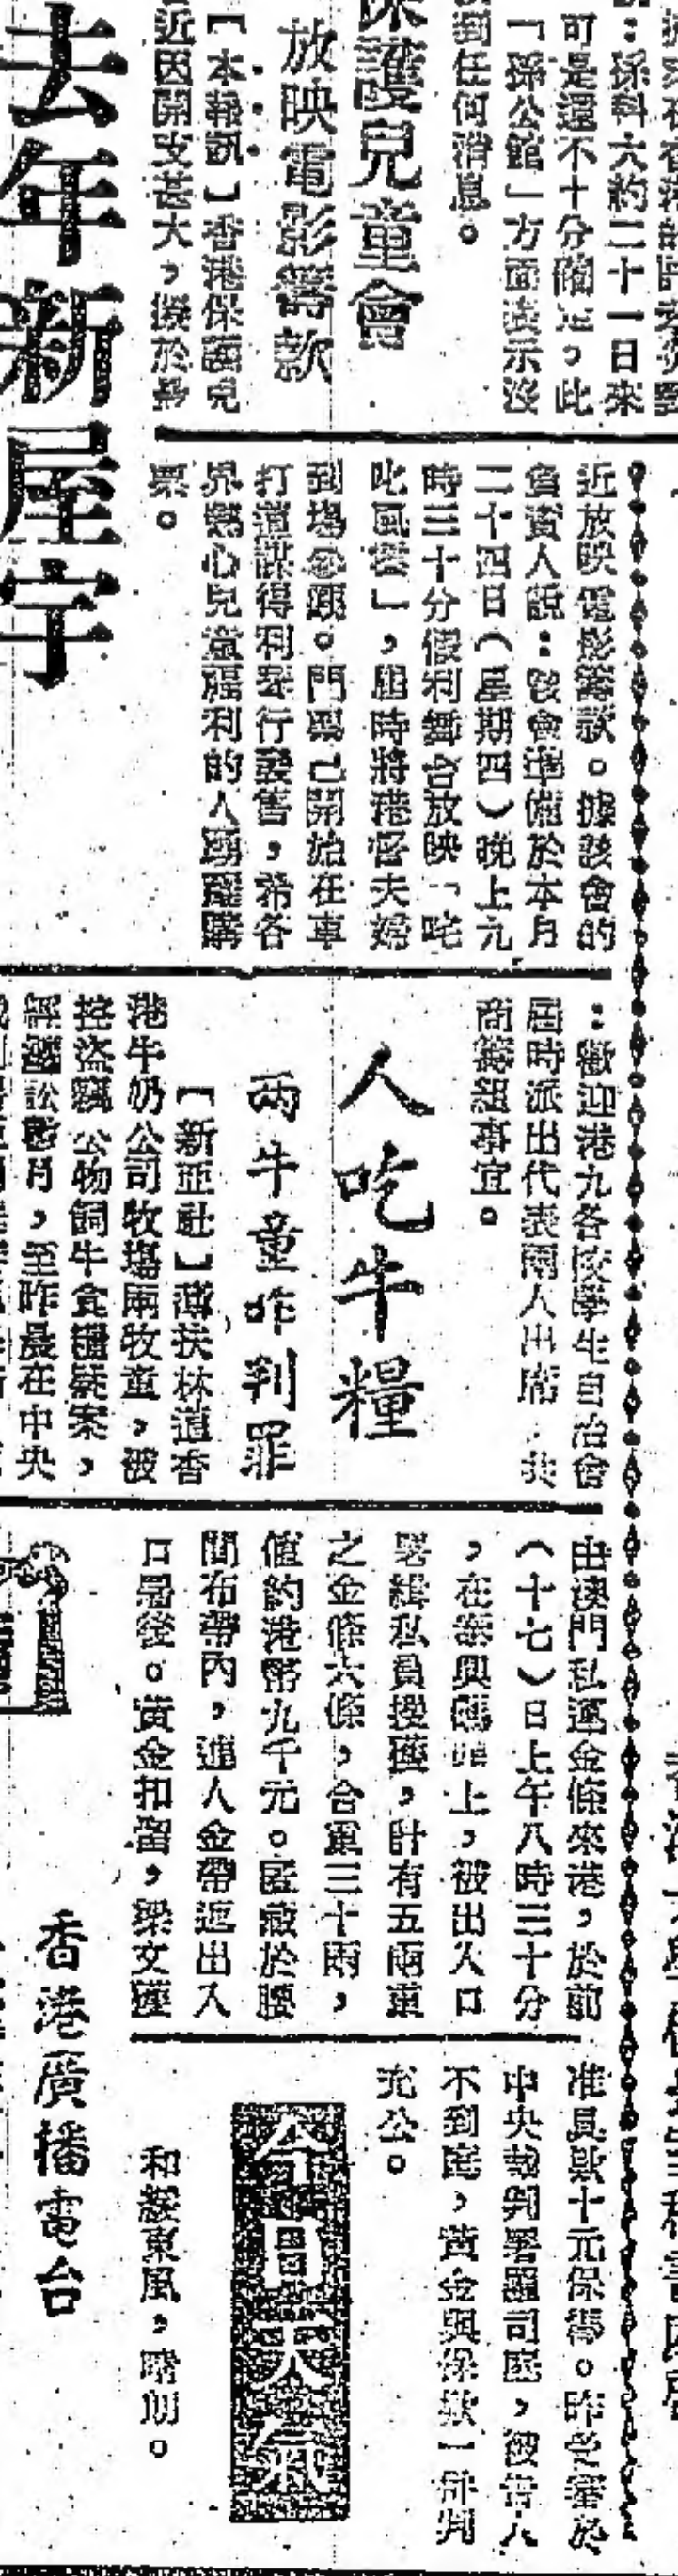 ：孫科大約二十一日來
可是還不十分確定，此
「孫公館」方面表示沒
到任何消息。
保護兒童會
放映電影籌款
【本報訊】香港保護兒
近因開支甚大，擬於最
近放映電影籌款。據該會的
負責人說：該會準備於本月
二十四日（星期四）晚上九
時三十分假利舞台放映「咤
叱風雲」，屆時將港督夫婦
到場參觀。門票已開始在車
打道謀得利琴行發售，希各
界熱心兒童福利的人踴躍購
票。
去年新屋宇
：歡迎港九各校學生自治會
屆時派出代表兩人出席，共
商籌組事宜。
人吃牛糧
两牛童昨判罪
【新亞社】薄扶林道香
港牛奶公司牧場兩牧童，被
控盜竊公物飼牛食糧疑案，
經審訊多月，至昨晨在中央
由澳門私運金條來港，於前
（十七）日上午八時三十分
，在泰興碼頭上，被出入口
署緝私員搜獲，計有五兩重
之金條六條，合重三十兩，
值約港幣九千元。匿藏於腰
間布帶內，連人金帶返出入
口署後。黃金扣留，梁文
准具欵十元保外。昨
中央裁判署羅司庭，被告人
不到庭，黃金與保欵一併判
充公。
今日天氣
和緩東風，晴朗。
香港廣播電台